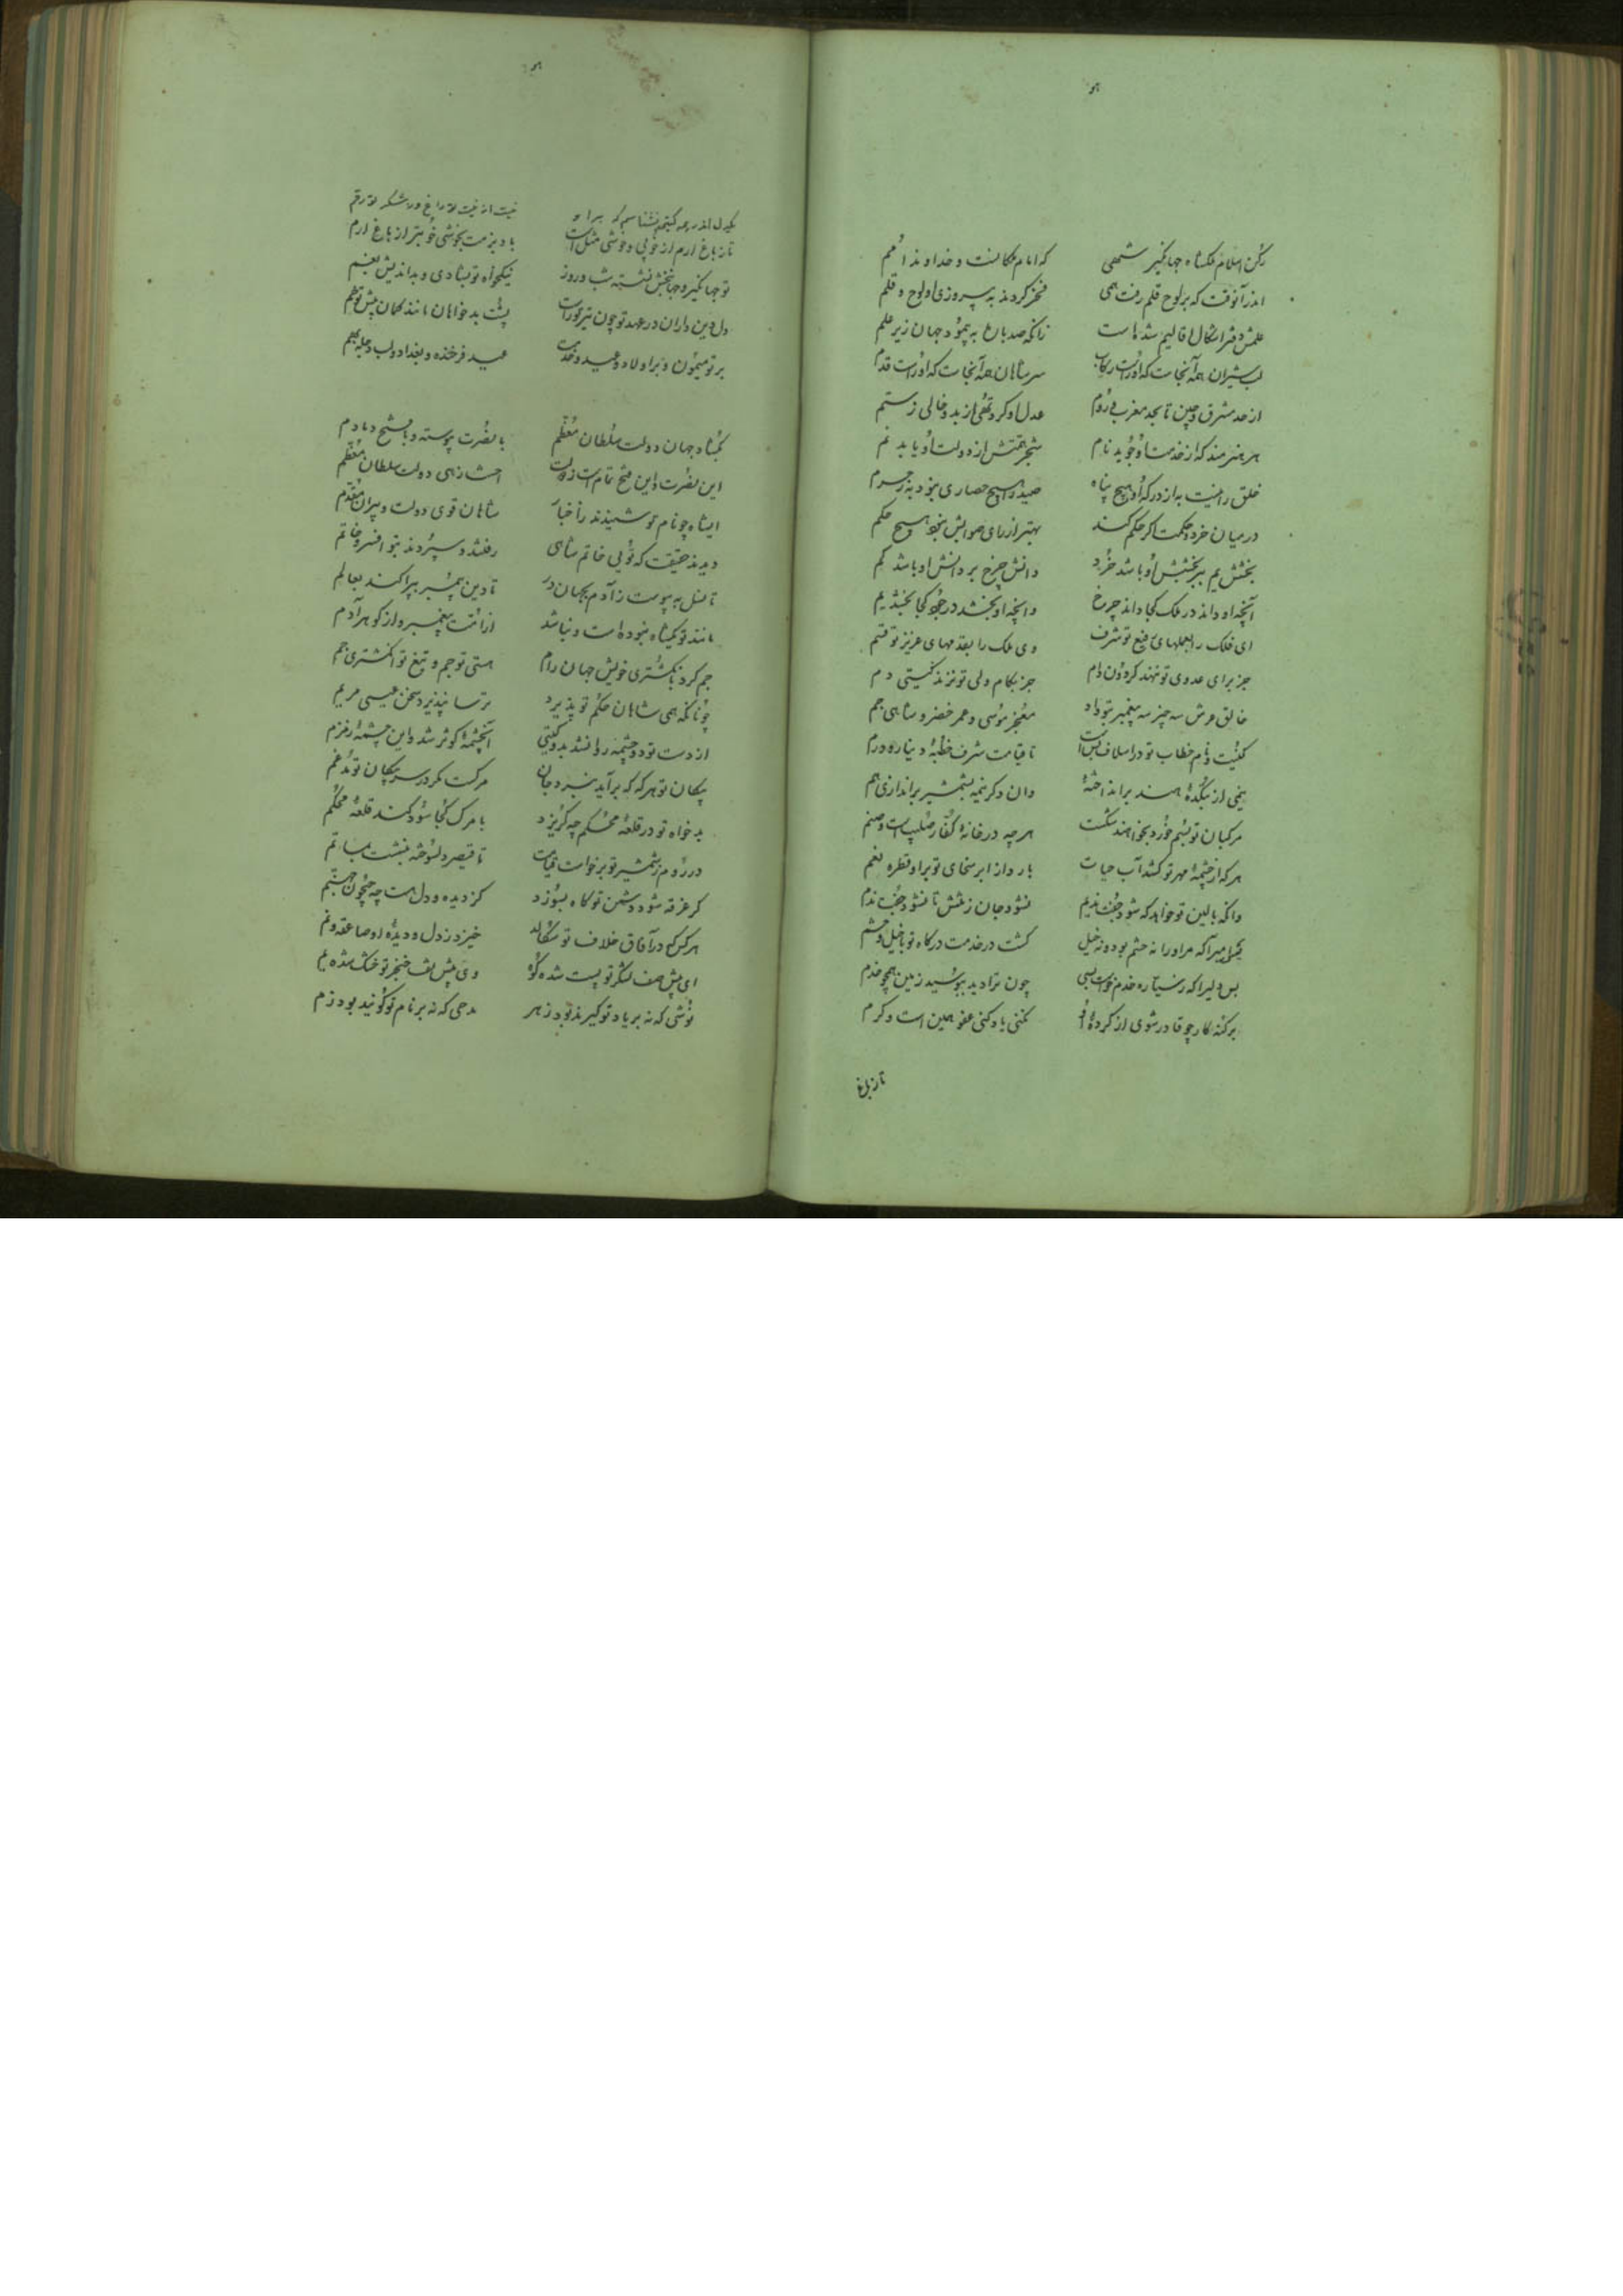 هو
رکن اسلام ملکشاه جهانگیر شهی که امام ملکانست و خداوند امم
اندر آنوقت که بر لوح قلم رفت همی فخر کردند به پیروزی او لوح و قلم
علمش دفتر اشکال اقالیم شده است زانکه صد بار به پیمود جهان زیر علم
لب شیران همه آنجاست که او راست رکاب سر شاهان همه آنجاست که او راست قدم
از حد مشرق و چین تا بحد مغرب و روم عدل او کرد تهی از بد و خالی ز ستم
هر هنرمند که از خدمت او جوید نام شجر همتش از دولت او یابد نم
خلق را نیست به از درگه او هیچ پناه صید را هیچ حصاری نبود به ز حرم
در میان خرد و حکمت اگر حکم کنند بهتر از رای صوابش نبود هیچ حکم
بخشش یم بر بخشش او باشد خرد دانش چرخ بر دانش او باشد کم
آنچه او داند در ملک کجا داند چرخ وانچه او بخشد در جود کجا بخشد یم
ای فلک را بعملهای رفیع تو شرف وی ملک را بقدمهای عزیز تو قسم
جز برای عدوی تو ننهد گردون دام جز بکام ولی تو نزند گیتی دم
خالق عرش سه چیز سه پیمبر بتو داد معجز موسی و عمر خضر و شاهی جم
کنیت و نام خطاب تو در اسلاف بس است تا قیامت شرف خطبه و دینار و درم
نیمی از بتکده هند برانداخته وان دگر نیمه بشمشیر براندازی هم
مرکبان تو بسم خرد بخواهند شکست هر چه در خانه کفار صلیبست و صنم
هر که از چشمه مهر تو کشد آب حیات بارد از ابر سخای تو بر او قطره نعم
وانکه بالین تو خواهد که شود جفت ندیم نشود جان ز تنش تا نشود جفت ندم
بس امیرا که مر او را نه حشم بود و نه خیل گشت در خدمت درگاه تو با خیل و حشم
بس دلیرا که ز سیاره خدم خواست بسی چون ترا دید ببوسید زمین همچو خدم
بر گنه کار چو قادر شوی از کرده او نکنی یاد و کنی عفو همین است و کرم
تا ز باغ
هو
یکدل اندر همه گیتی نشناسم که بر او نیست از نیت تو داغ و ز شکر تو رقم
تا ز باغ ارم از خوبی و خوشی مثل است باد بزمت بخوشی خوبتر از باغ ارم
تو جهانگیر و جهانبخش نشسته شب و روز نیکخواه تو بشادی و بداندیش بغم
دل دین داران در عهد تو چون تیر تو راست پشت بدخواهان مانند کمان پیش تو خم
بر تو میمون و بر اولاد و عید و خدمت عید فرخنده و بغداد و لب دجله بهم
بگشاد جهان دولت سلطان معظم با نصرت پیوسته و با فتح دمادم
این نصرت و این فتح تمام است ز دولت احسنت زهی دولت سلطان معظم
ایشاه چو نام تو شنیدند ز اخبار شاهان قوی دولت و پیران مقدم
دیدند حقیقت که توئی خاتم شاهی رفتند و سپردند بتو افسر و خاتم
تا نسل به پیوست ز آدم بجهان در تا دین پیمبر بپراکند بعالم
مانند تو یکشاه نبوده است و نباشد از امت پیغمبر و از گوهر آدم
جم کرد بانگشتری خویش جهان رام هستی تو جم و تیغ تو انگشتری جم
چونانکه همی شاهان حکم تو پذیرد ترسا نپذیرد سخن عیسی مریم
از دست تو دو چشمه روان شد بدو گیتی آن چشمه کوثر شد و این چشمه زمزم
پیکان تو هر گه که برآید بنبرد جان مرگست مگر در سر پیکان تو مدغم
بدخواه تو در قلعه محکم چه گریزد با مرگ کجا سود کند قلعه محکم
در روم ز شمشیر تو برخواست قیامت تا قیصر دلسوخته بنشست بماتم
گر غرقه شود دشمن تو گاه بسوزد کز دیده و دل هست چه جیحون چه جهنم
هر کس که در آفاق خلاف تو سگالد خیزد ز دل و دیده او صاعقه و نم
ای پیش صف لشکر تو پست شده کوه وی پیش تف خنجر تو خشک شده یم
نوشی که نه بر یاد تو گیرند بود زهر مدحی که نه بر نام تو گویند بود ذم